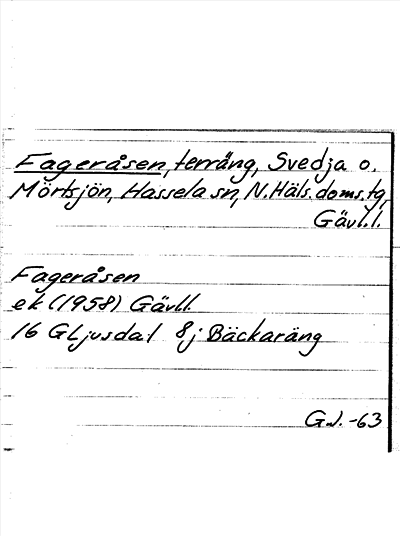 Fageråsen, terräng, Svedja o.
Mörtsjön, Hassela sn, N.Häls.doms.tg,
Gävl.l.
Fageråsen
ek (1958) Gävll.
16 G Ljusdal 8j Bäckaräng
G.J. -63